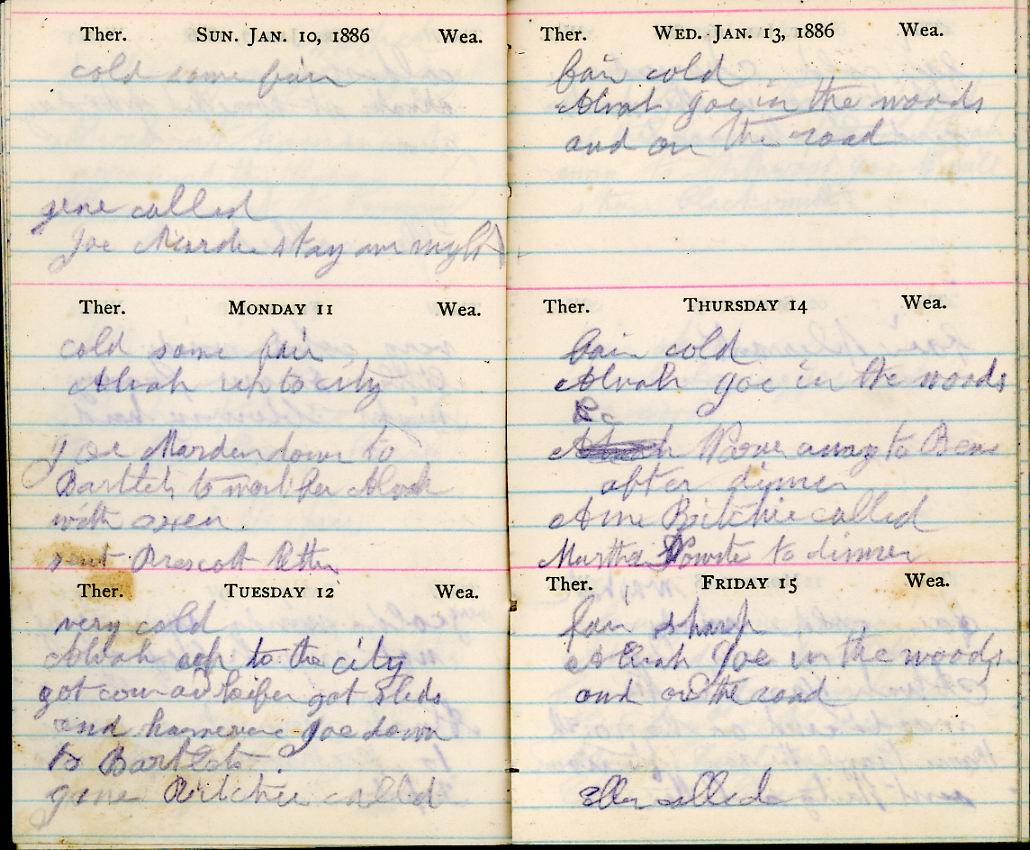 Ther. SUN. JAN. 10, 1886 Wea.
cold some fair
gene called
Joe Marden stay over night
Ther. MONDAY 11 Wea.
cold some fair
Alvah up to city
Joe Marden down to
Bartlets to work for Alvah
with oxen.
sent Prescott letter
Ther. TUESDAY 12 Wea.
very cold
Alvah up to the city
got cow and heifer got sleds
and Joe down
to Bartlets.
gene Ritchie called
Ther. WED. JAN. 13, 1886 Wea.
fair cold
Alvah Joe in the woods
and on the road
Ther. THURSDAY 14 Wea.
fair cold
Alvah Joe in the woods
away to Bens
after dinner
Ritchie called
Martha to dinner
Ther. FRIDAY 15 Wea.
fair sharp
Alvah Joe in the woods
and on the road
Ella called